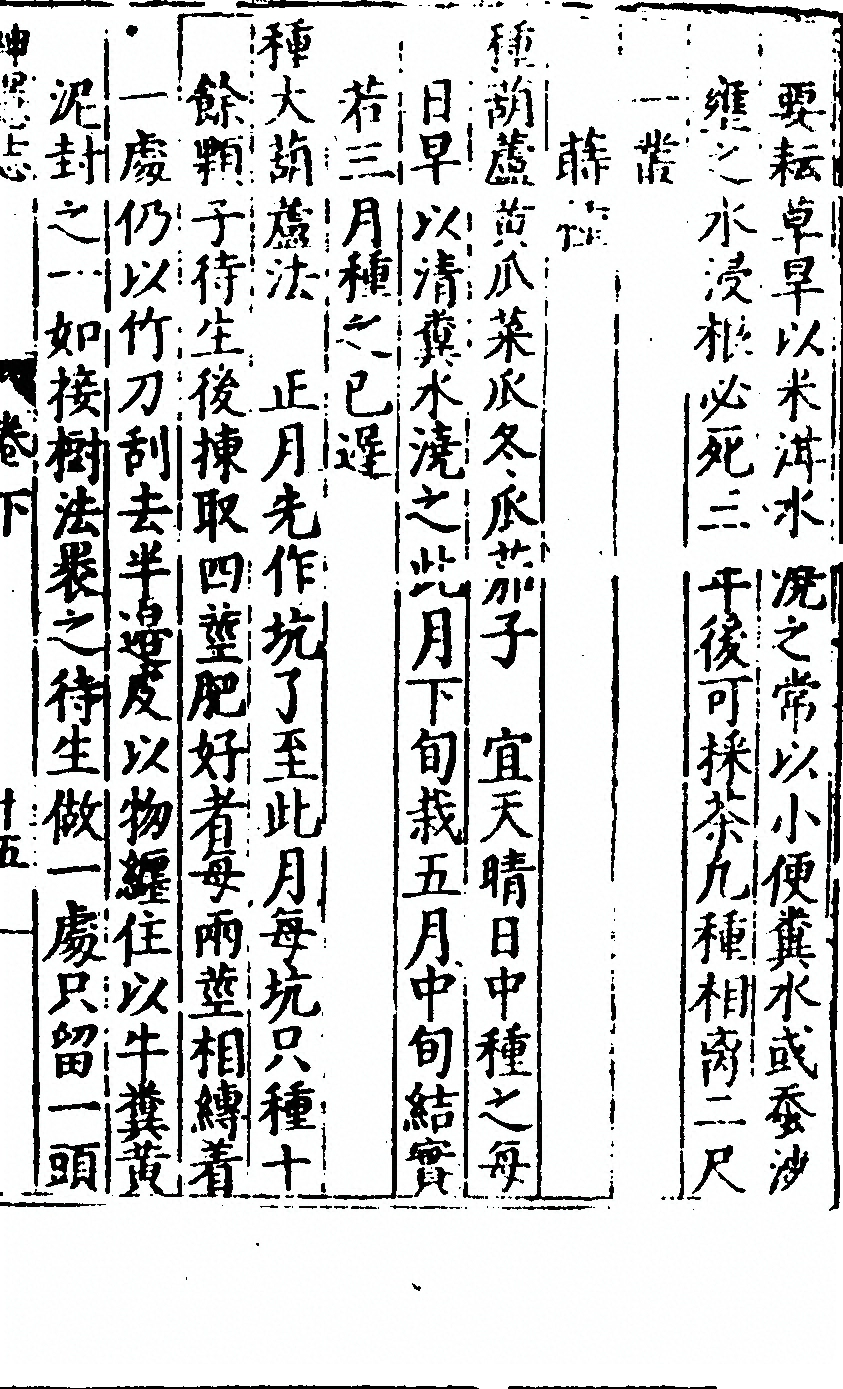 要耘草旱以米泔水澆之常以小便糞水或蚕沙
壅之水浸根必死三年後可採茶凡種相离二尺
一叢
蒔種
種葫蘆黄瓜菜瓜冬瓜茄子 宜天晴日中種之每
日早以清糞水澆之此月下旬栽五月中旬結實
若三月種之已遲
種大葫蘆法 正月先作坑了至此月每坑只種十
餘顆子待生後揀取四莖肥好者每兩莖相縛着
一處仍以竹刀刮去半邉皮以物纏住以牛糞黄
泥封之一如接樹法裹之待生做一處只留一頭
神隠志 卷下 十五